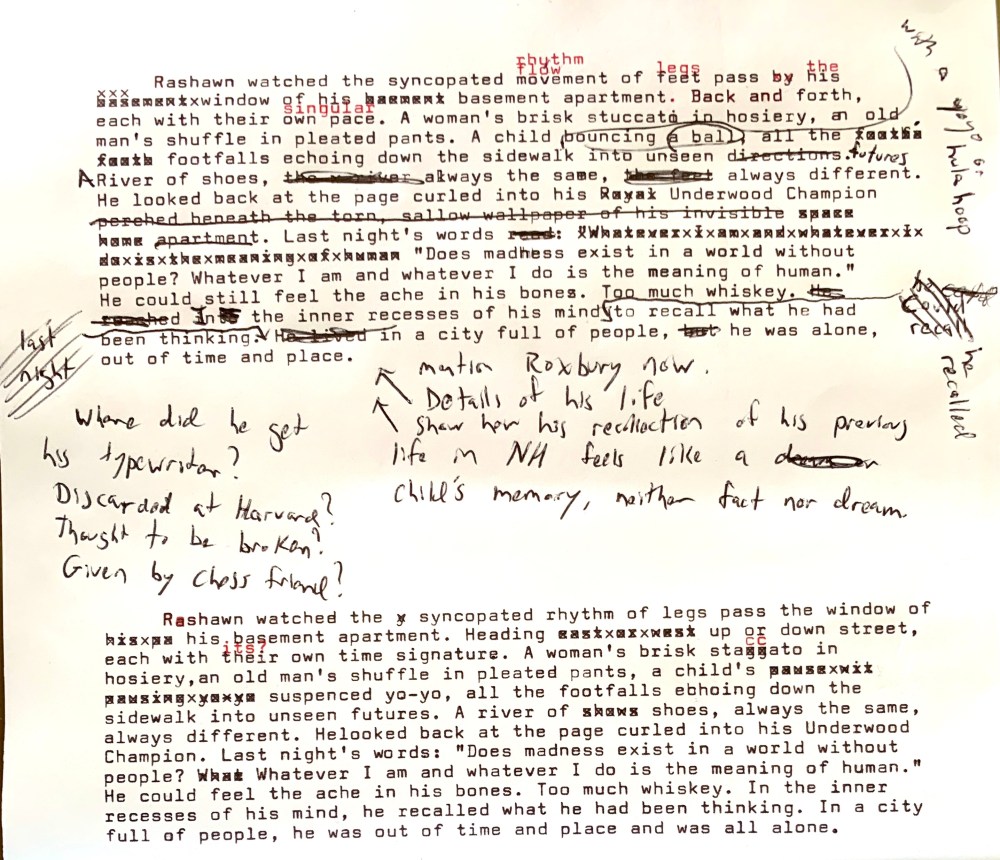 rhythm
flow legs the
Rashawn watched the syncopated movement of feet pass by his
xxx
basementxwindow of his basement basement apartment. Back and forth,
singular
each with their own pace. A woman's brisk stuccato in hosiery, an old
man's shuffle in pleated pants. A child bouncing a ball, all the
footfalls echoing down the sidewalk into unseen directions. futures
A River of shoes, always the same, always different.
He looked back at the page curled into his Royal Underwood Champion
perched beneath the torn, sallow wallpaper of his invisible space
home apartment. Last night's words read: xWhateverxixamxandxwhateverxix
doxisxthexmeaningxofxhuman "Does madness exist in a world without
people? Whatever I am and whatever I do is the meaning of human."
He could still feel the ache in his bones. Too much whiskey. He
reached In the inner recesses of his mind to recall what he had
been thinking. He lived in a city full of people, but he was alone,
out of time and place.
with a yoyo or hula hoop
he recalled
last
night
mention Roxbury now.
Details of his life
Show how his recollection of his previous
life in NH feels like a
child's memory, neither fact nor dream.
Where did he get
his typewriter?
Discarded at Harvard?
Thought to be broken?
Given by chess friend?
Rashawn watched the x syncopated rhythm of legs pass the window of
his basement apartment. Heading eastxorxwest up or down street,
its? cc
each with their own time signature. A woman's brisk staggato in
hosiery,an old man's shuffle in pleated pants, a child's pausexwit
pausingxyoxyo suspenced yo-yo, all the footfalls ebhoing down the
sidewalk into unseen futures. A river of shows shoes, always the same,
always different. Helooked back at the page curled into his Underwood
Champion. Last night's words: "Does madness exist in a world without
people? What Whatever I am and whatever I do is the meaning of human."
He could feel the ache in his bones. Too much whiskey. In the inner
recesses of his mind, he recalled what he had been thinking. In a city
full of people, he was out of time and place and was all alone.